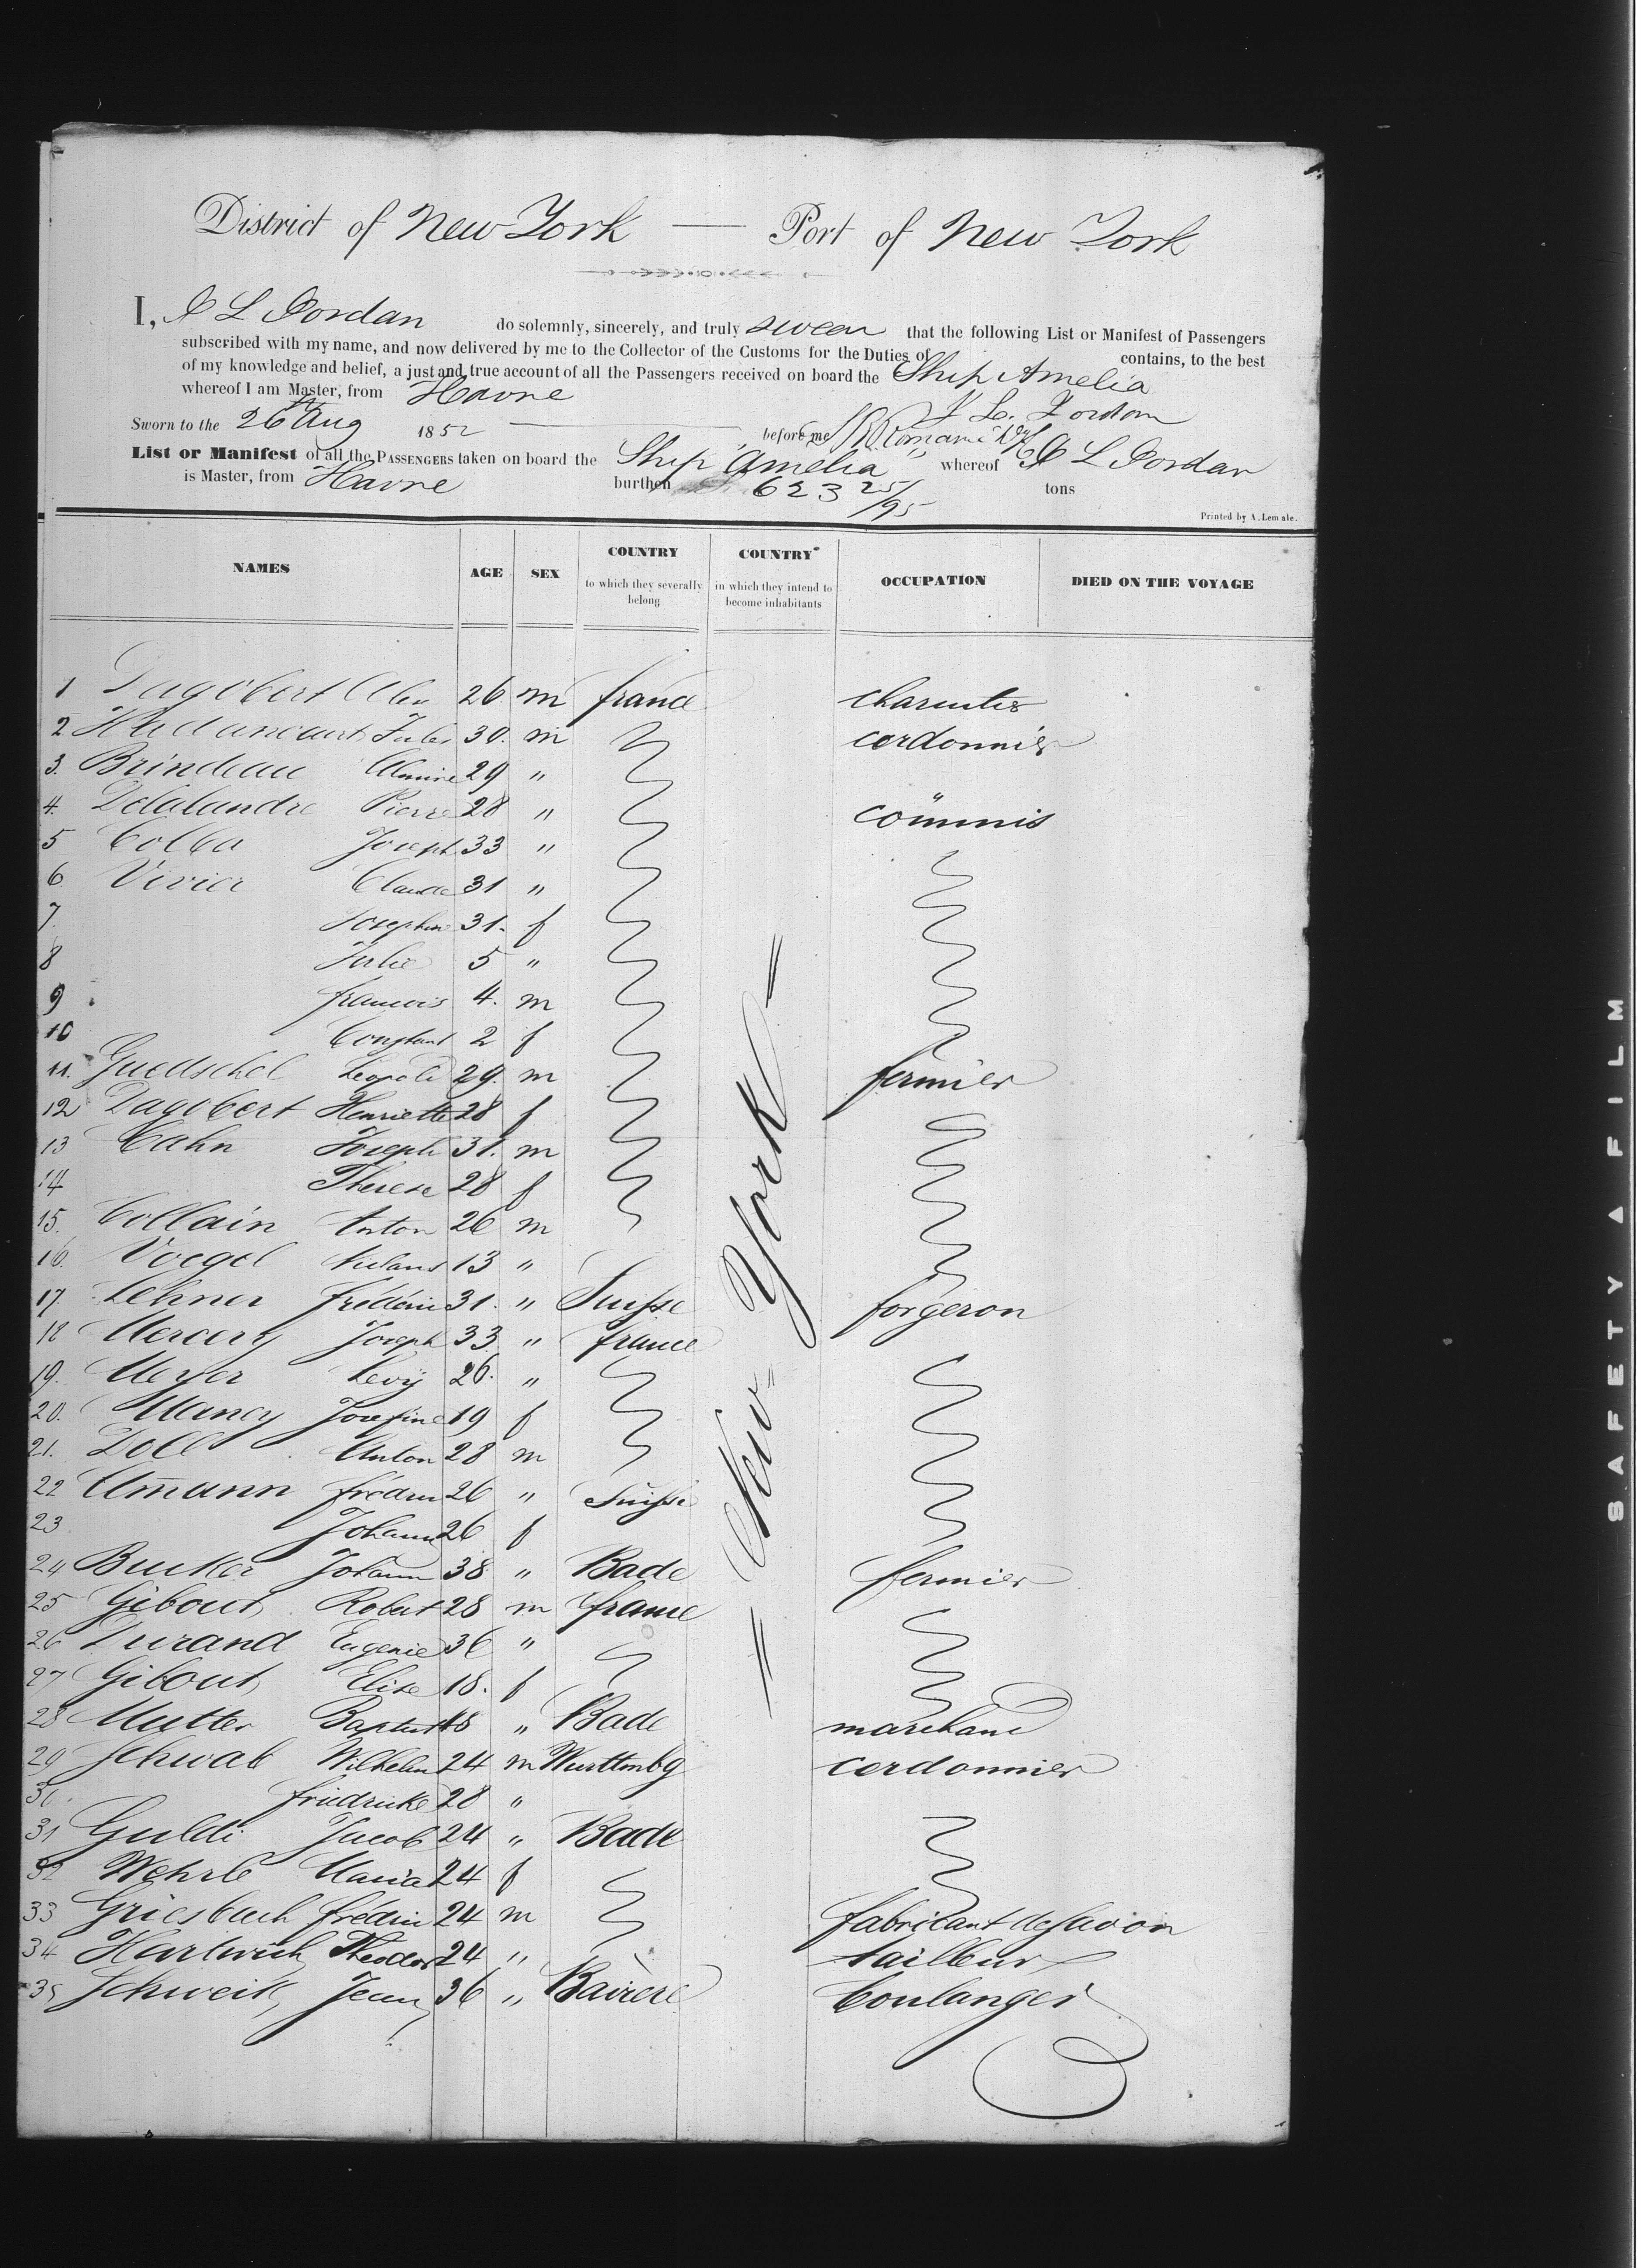 District of New York — Port of New York
I, L Jordan do solemnly, sincerely, and truly swear that the following List or Manifest of Passengers
subscribed with my name, and now delivered by me to the Collector of the Customs for the Duties of contains, to the best
of my knowledge and belief, a just and true account of all the Passengers received on board the Ship Amelia
whereof I am Master, from Havre
L. Jordan
Sworn to the 26th Aug 1852 before me
List or Manifest of all the PASSENGERS taken on board the Ship "Amelia" whereof L Jordan
is Master, from Havre burthen 623 25/95 tons
Printed by A. Lemale.
NAMES AGE SEX COUNTRY to which they severally belong COUNTRY in which they intend to become inhabitants OCCUPATION DIED ON THE VOYAGE
= New York =
1 Dagobert 26 m france
2 Jules 30. m cordonnier
3. Brindeau 29 "
4. Delalandre Pierre 28 " commis
5 Joseph 33 "
6 Claude 31 "
7. Josephine 31. f
8 Julie 5 "
9 francois 4. m
10 Constant 2 f
11. Leopold 29. m fermier
12 Dagobert Henriette 28 f
13 Cahn Joseph 31. m
14 Therese 28 f
15. Collain Anton 26 m
16. Voegel 13 "
17. Lehner frédéric 31. " Suisse forgeron
18 Joseph 33 " france
19. Meyer Levy 26. "
20. Josefine 19 f
21. Doll Anton 28 m
22 26 " Suisse
23 Johann 26 f
24 Johann 38 " Bade fermier
25 Gibout Robert 28 m france
26 Durand Eugenie 36 "
27 Gibout Elise 18. f
28 Mutter Baptist 18 " Bade marchand
29 Schwab Wilhelm 24 m Wurttembg cordonnier
30. friedricke 28 "
31 Guldi Jacob 24 " Bade
32 Wehrle Maria 24 f
33 Griesbach 24 m fabricant de savon
34 Hartwich Theodor 24 " tailleur
35 Schweik, Jean, 36 " Bavière boulanger
SAFETY ▲ FILM